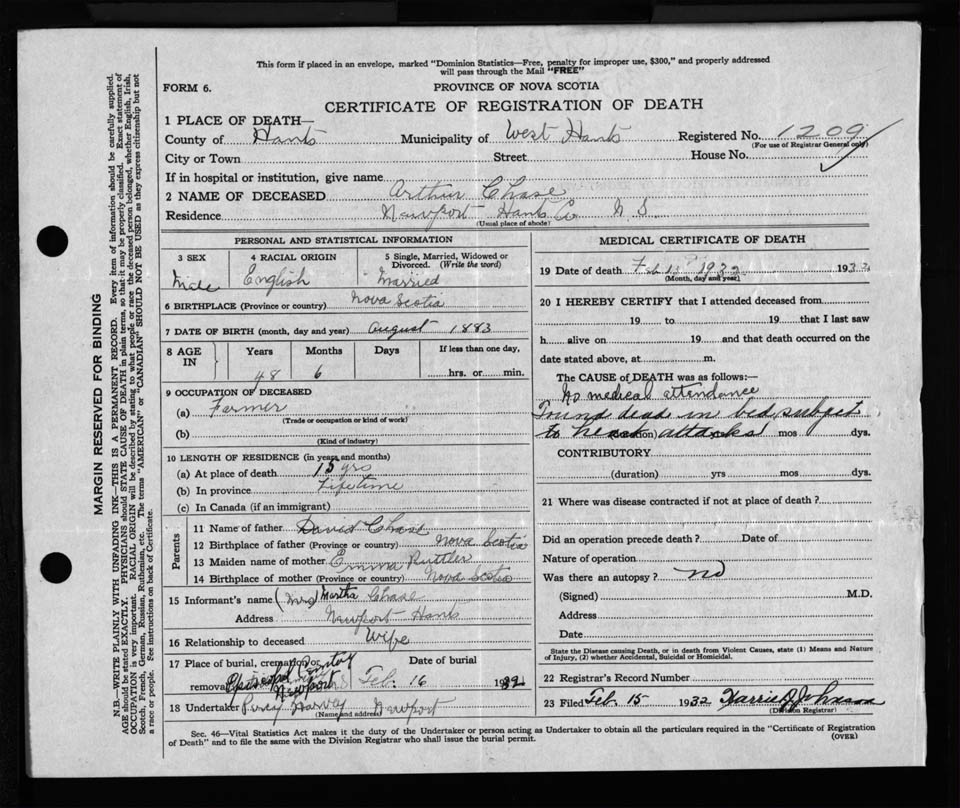 This form if placed in an envelope, marked "Dominion Statistics—Free, penalty for improper use, $300," and properly addressed
will pass through the Mail "FREE"
FORM 6.
PROVINCE OF NOVA SCOTIA
CERTIFICATE OF REGISTRATION OF DEATH
1 PLACE OF DEATH—
County of Hants Municipality of West Hants Registered No. 1209
(For use of Registrar General only)
City or Town Street House No.
If in hospital or institution, give name
2 NAME OF DECEASED Arthur Chase
Residence Newport Hants Co N S
(Usual place of abode)
PERSONAL AND STATISTICAL INFORMATION
3 SEX 4 RACIAL ORIGIN 5 Single, Married, Widowed or
Divorced. (Write the word)
Male English Married
6 BIRTHPLACE (Province or Country) Nova Scotia
7 DATE OF BIRTH (month, day and year) August 1883
8 AGE IN Years Months Days If less than one day,
48 6 hrs. or min.
9 OCCUPATION OF DECEASED
(a) Farmer
(Trade or occupation or kind of work)
(b)
(Kind of industry)
10 LENGTH OF RESIDENCE (in years and months)
(a) At place of death 15 yrs
(b) In province Lifetime
(c) In Canada (if an immigrant)
Parents
11 Name of father David Chase
12 Birthplace of father (Province or country) Nova Scotia
13 Maiden name of mother Emma
14 Birthplace of mother (Province or country) Nova Scotia
15 Informant's name (Mrs) Martha Chase
Address Newport Hants
16 Relationship to deceased Wife
17 Place of burial, cremation or Date of burial
removal Episcopal Newport Feb. 16 1932
18 Undertaker Percy Harvey Newport
(Name and address)
MEDICAL CERTIFICATE OF DEATH
19 Date of death Feb 1932 1932
(Month, day and year)
20 I HEREBY CERTIFY that I attended deceased from
19 to 19 that I last saw
h alive on 19 and that death occurred on the
date stated above, at m.
The CAUSE of DEATH was as follows:—
No medical attendance
Found dead in bed, subject
to heart attacks (duration) mos dys.
CONTRIBUTORY
(duration) yrs mos dys.
21 Where was disease contracted if not at place of death?
Did an operation precede death? Date of
Nature of operation
Was there an autopsy? no
(Signed) M.D.
Address
Date
State the Disease causing Death, or in death from Violent Causes, state (1) Means and Nature
of Injury, (2) whether Accidental, Suicidal or Homicidal.
22 Registrar's Record Number
23 Filed Feb. 15 1932 Harris J Johnson
(Division Registrar)
Sec. 46—Vital Statistics Act makes it the duty of the Undertaker or person acting as Undertaker to obtain all the particulars required in the "Certificate of Registration
of Death" and to file the same with the Division Registrar who shall issue the burial permit.
(OVER)
MARGIN RESERVED FOR BINDING
N.B.—WRITE PLAINLY WITH UNFADING INK—THIS IS A PERMANENT RECORD. Every item of information should be carefully supplied.
AGE should be stated EXACTLY. PHYSICIANS should STATE CAUSE OF DEATH in plain terms, so that it may be properly classified. Exact statement of
OCCUPATION is very important. RACIAL ORIGIN will be described by stating to what people or race the deceased person belonged, whether English, Irish,
Scotch, French, German, Russian, Ruthenian, etc. The terms "AMERICAN" or "CANADIAN" SHOULD NOT BE USED as they express citizenship but not
a race or people. See instructions on back of Certificate.